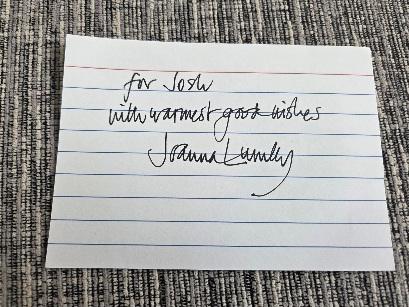 for Josh
with warmest good wishes
Joanna Lumley